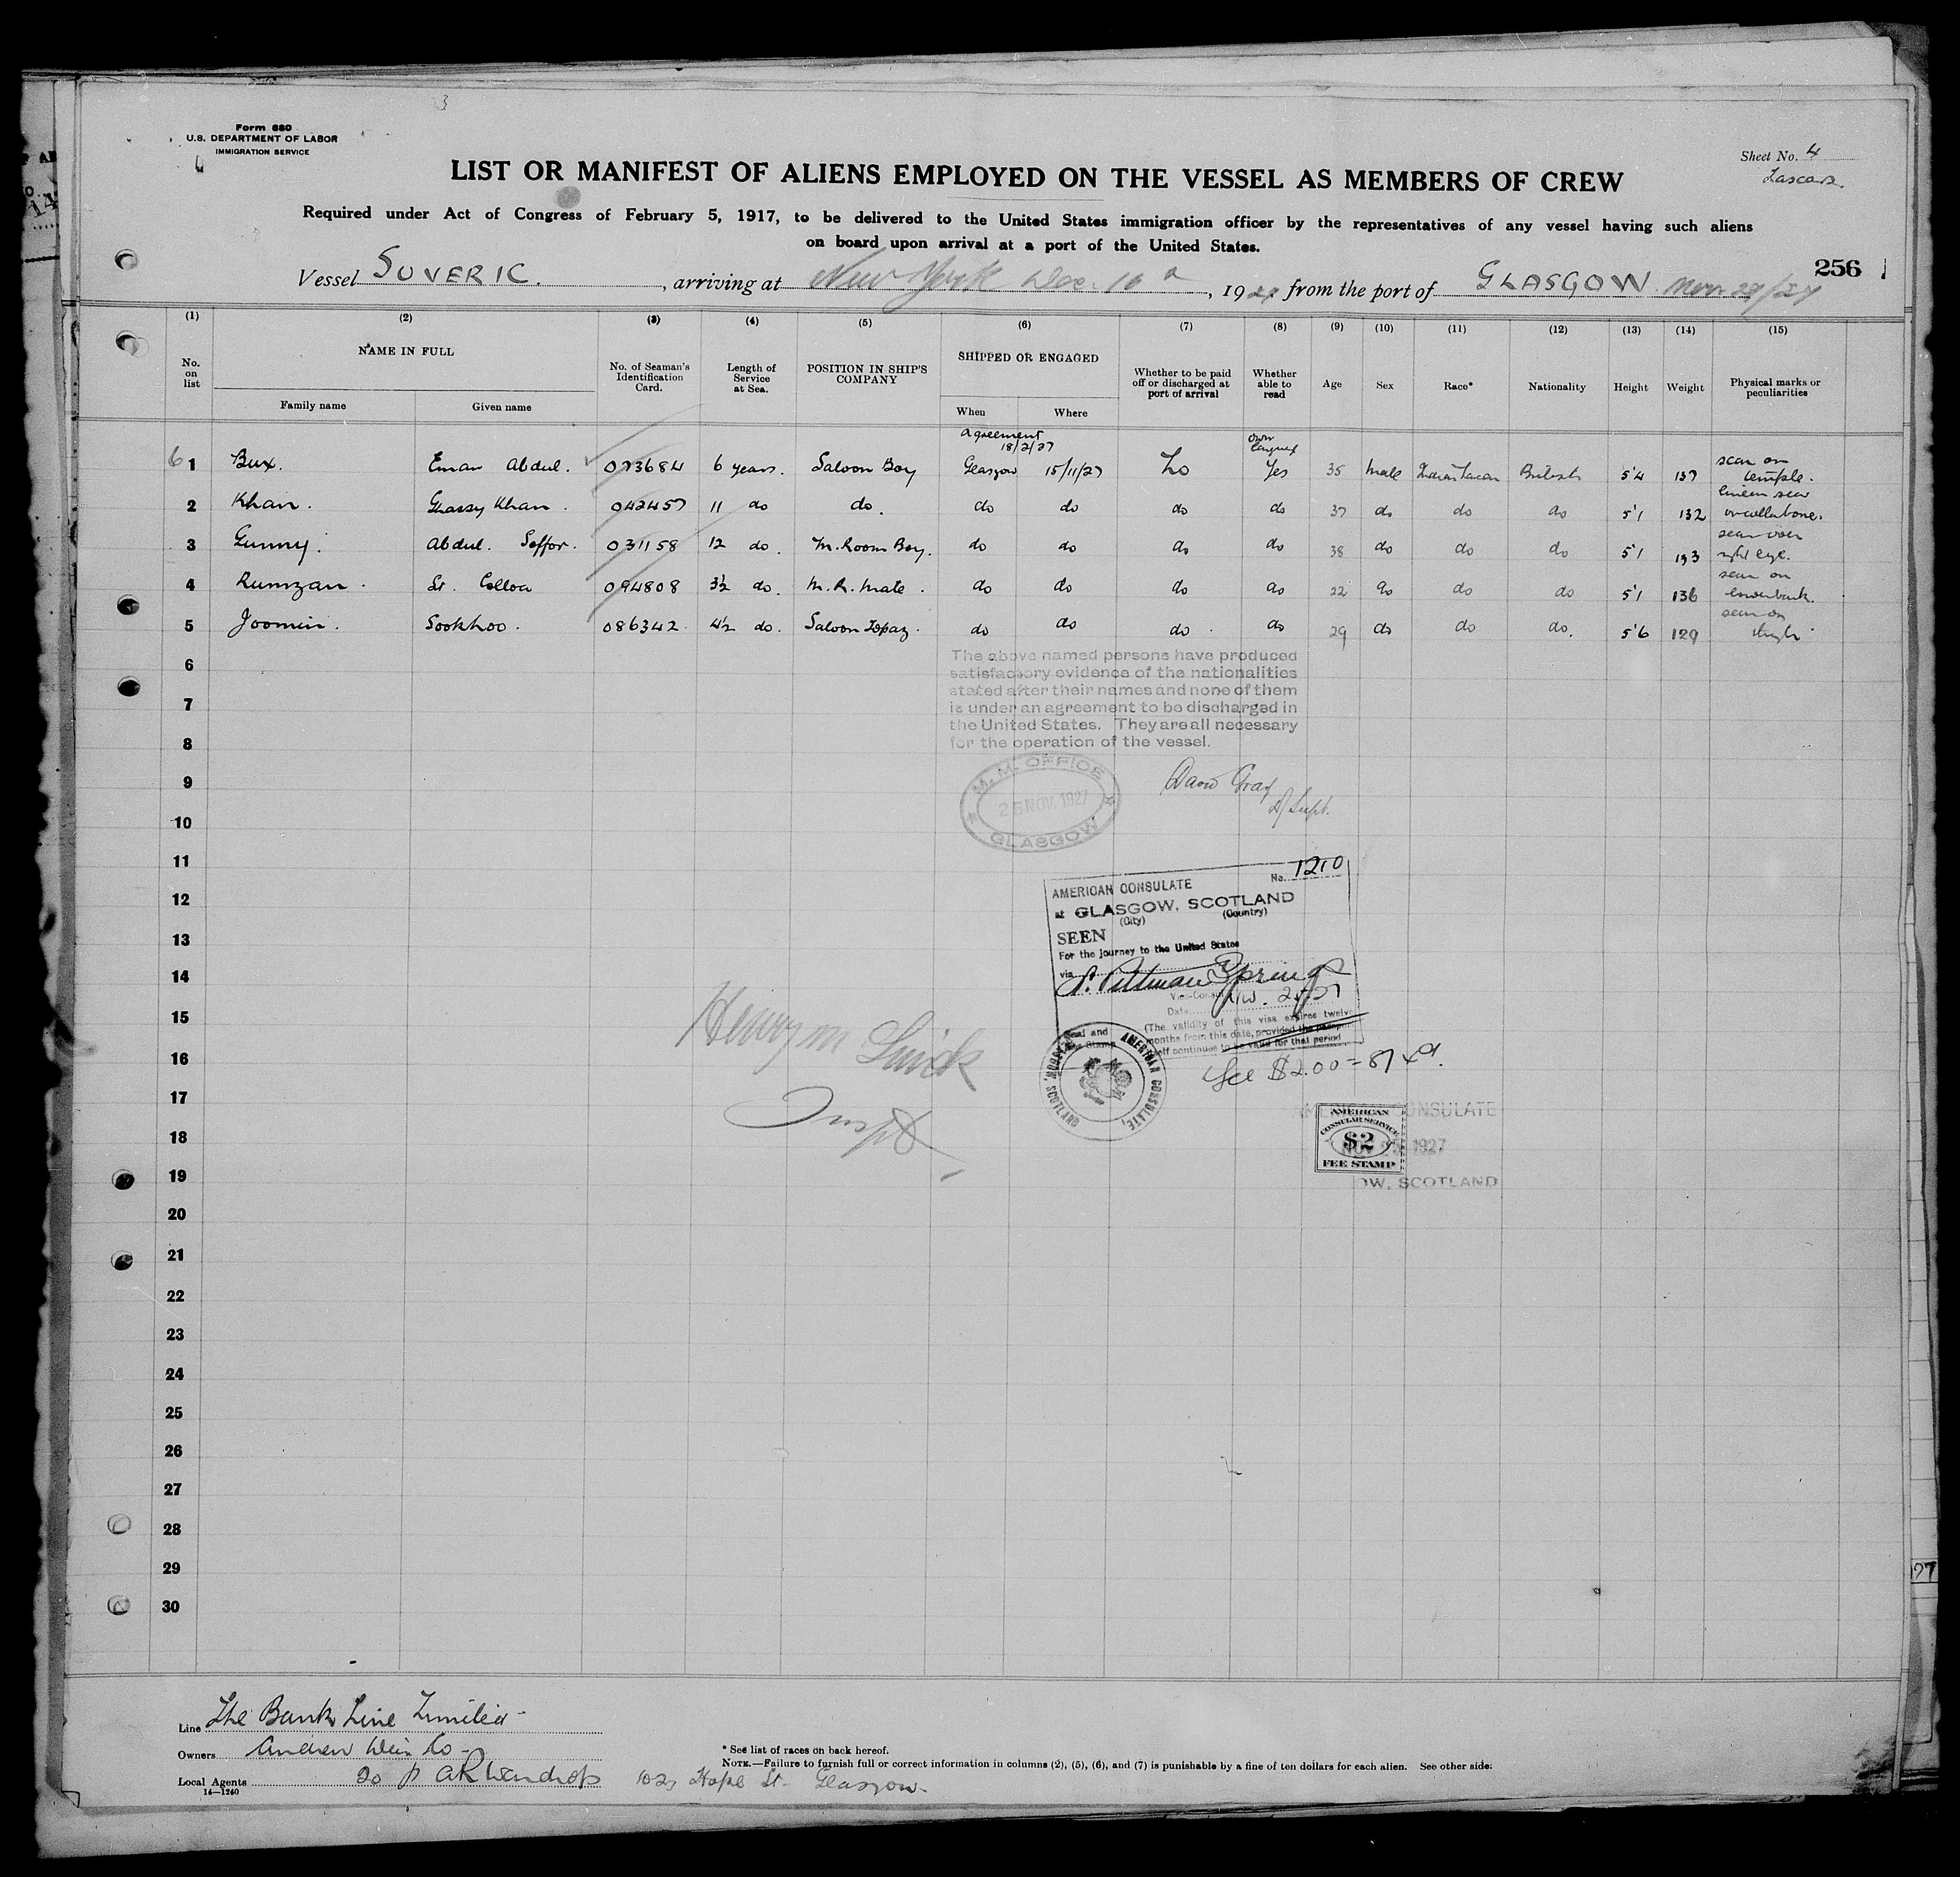 3
Form 680
U.S. DEPARTMENT OF LABOR
IMMIGRATION SERVICE
Sheet No. 4
Lascars.
LIST OR MANIFEST OF ALIENS EMPLOYED ON THE VESSEL AS MEMBERS OF CREW
Required under Act of Congress of February 5, 1917, to be delivered to the United States immigration officer by the representatives of any vessel having such aliens
on board upon arrival at a port of the United States.
256
Vessel SUVERIC. , arriving at New York Dec. 10 , 1927 from the port of GLASGOW Nov 29/27
(1) (2) (3) (4) (5) (6) (7) (8) (9) (10) (11) (12) (13) (14) (15)
No. on list NAME IN FULL Family name Given name No. of Seaman's Identification Card. Length of Service at Sea. POSITION IN SHIP'S COMPANY SHIPPED OR ENGAGED When Where Whether to be paid off or discharged at port of arrival Whether able to read Age Sex Race* Nationality Height Weight Physical marks or peculiarities
agreement 18/2/27 own
6 1 Bux. Eman Abdul. 073684 6 years. Saloon Boy Glasgow 15/11/27 No Yes 35 Male British 5'4 137 scar on temple.
2 Khan. Khan. 042457 11 do do. do do do do 37 do do do 5'1 132 on collarbone.
3 Gunny. Abdul. Soffor. 031158 12 do. M. Room Boy. do do do do 38 do do do 5'1 133 scar over right eye.
4 Rumzan. 094808 3½ do. M. R. Mate. do do do do 22 do do do 5'1 136 scar on
5 Joomin. Sookhoo. 086342 4½ do. Saloon Topaz. do do do do 29 do do do. 5'6 129 scar on thigh
6
The above named persons have produced
satisfactory evidence of the nationalities
stated after their names and none of them
7
is under an agreement to be discharged in
the United States. They are all necessary
8
for the operation of the vessel.
9
M. M. OFFICE
25 NOV 1927
GLASGOW
Gray
D/Supt.
10
11
AMERICAN CONSULATE No. 1210
12
at GLASGOW, SCOTLAND
(City) (Country)
13
SEEN
For the journey to the United States
14
via
Pittman Spring
Vice-Consul
Date Nov. 25/27
15
(The validity of this visa expires twelve
months from this date, provided the
self continues to be valid for that period
Seal and
Stamp
AMERICAN CONSULATE,
SCOTLAND
Henry M
Insp
16
Fee $2.00 =
17
CONSULATE
AMERICAN
CONSULAR SERVICE
$2
FEE STAMP
1927
OW, SCOTLAND
18
19
20
21
22
23
24
25
26
27
28
29
30
Line The Bank Line Limited
Owners Andrew Weir Co
* See list of races on back hereof.
NOTE.—Failure to furnish full or correct information in columns (2), (5), (6), and (7) is punishable by a fine of ten dollars for each alien. See other side.
Local Agents Hope St. Glasgow.
14—1240